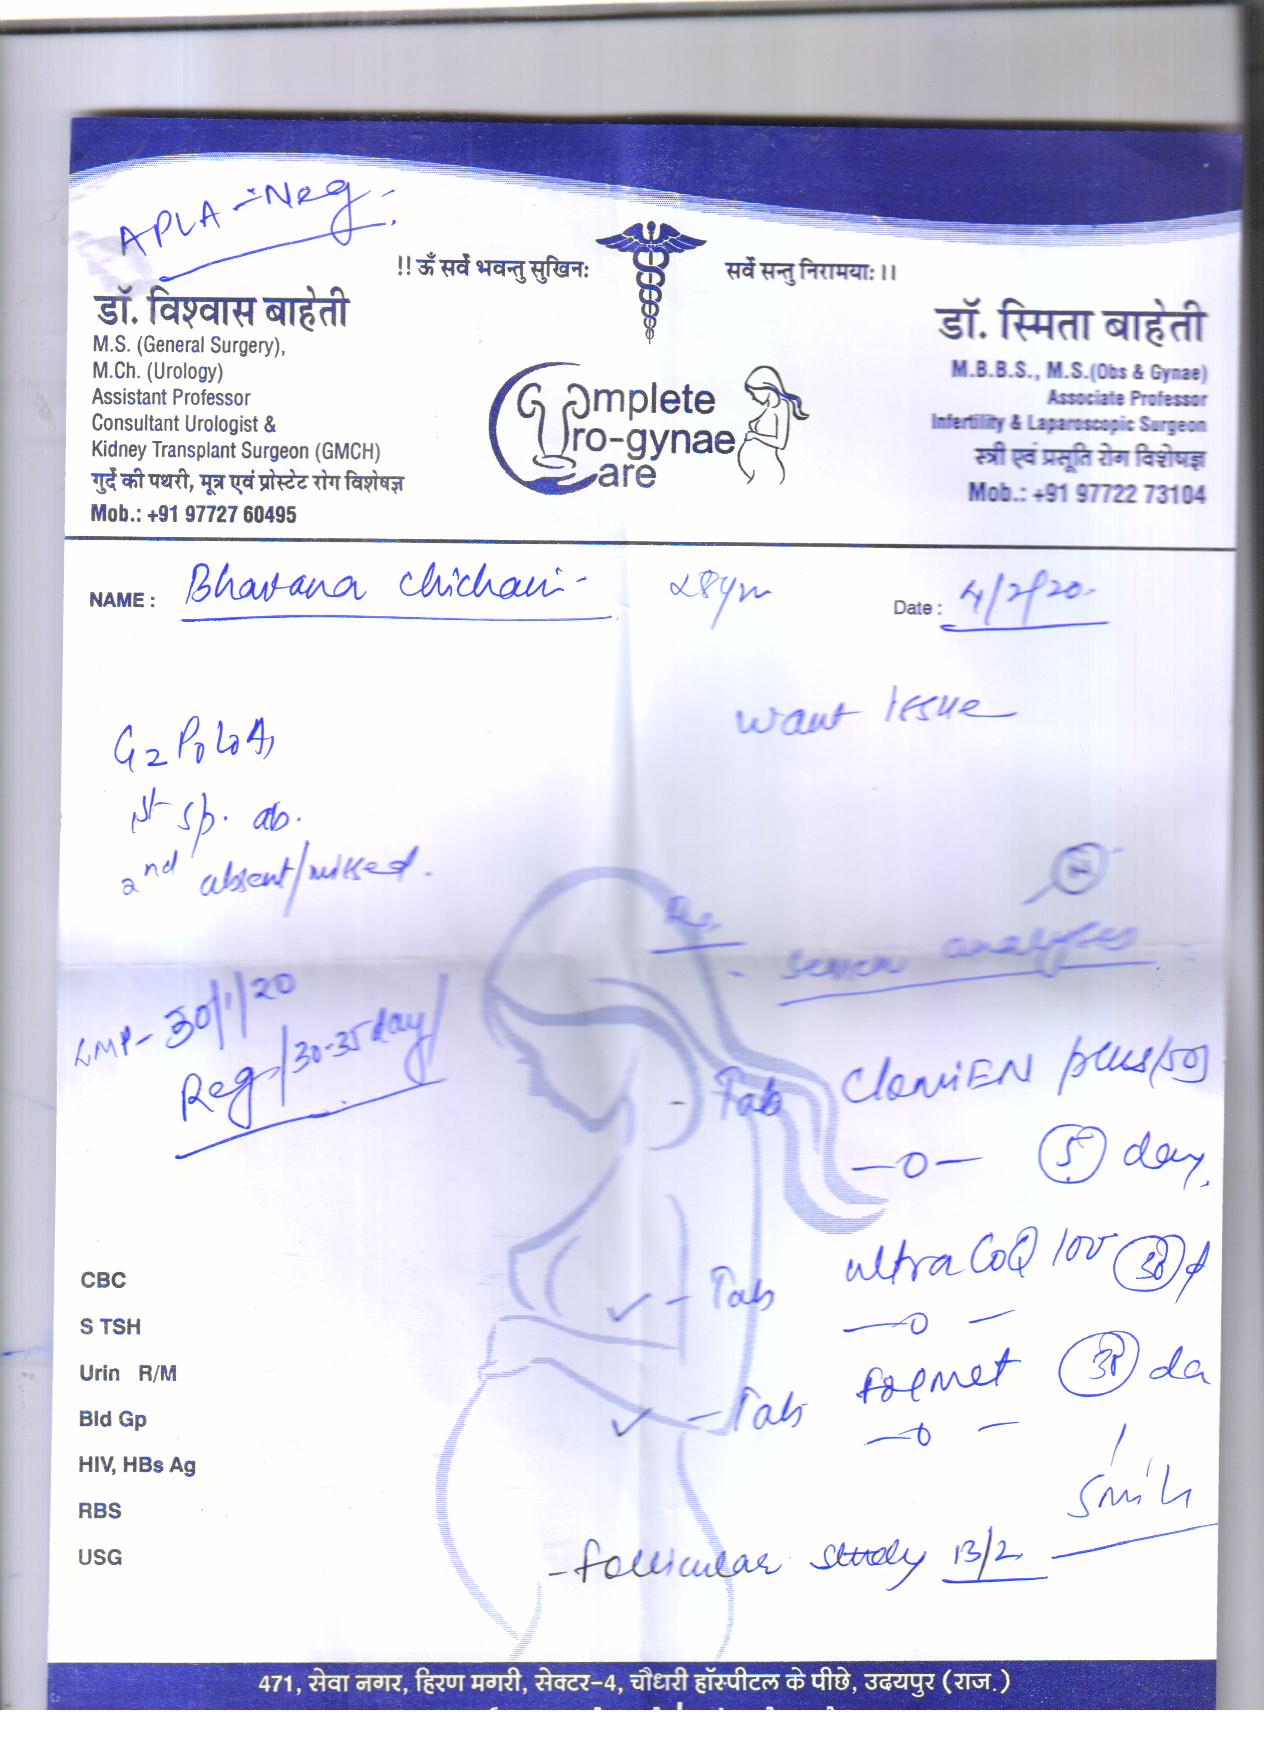 APLA - Neg.
!! ॐ सर्वे भवन्तु सुखिन: सर्वे सन्तु निरामया: ।।
डॉ. विश्वास बाहेती
M.S. (General Surgery),
M.Ch. (Urology)
Assistant Professor
Consultant Urologist &
Kidney Transplant Surgeon (GMCH)
गुर्दे की पथरी, मूत्र एवं प्रोस्टेट रोग विशेषज्ञ
Mob.: +91 97727 60495
Complete
Uro-gynae
Care
डॉ. स्मिता बाहेती
M.B.B.S., M.S.(Obs & Gynae)
Associate Professor
Infertility & Laparoscopic Surgeon
स्त्री एवं प्रसूति रोग विशेषज्ञ
Mob.: +91 97722 73104
NAME : Bhavana 28yr Date : 4/2/20
want Issue
G2 P0 L0 A1
1st sp. ab.
2nd absent/missed.
Rx
- semen analyses
LMP - 30/1/20
Reg/30-35 day/
- Tab
5 day
- Tab ultra CoQ 100 30
- Tab folmet 30 da
CBC
S TSH
Urin R/M
Bld Gp
HIV, HBs Ag
RBS
USG
- follicular study 13/2
471, सेवा नगर, हिरण मगरी, सेक्टर-4, चौधरी हॉस्पीटल के पीछे, उदयपुर (राज.)